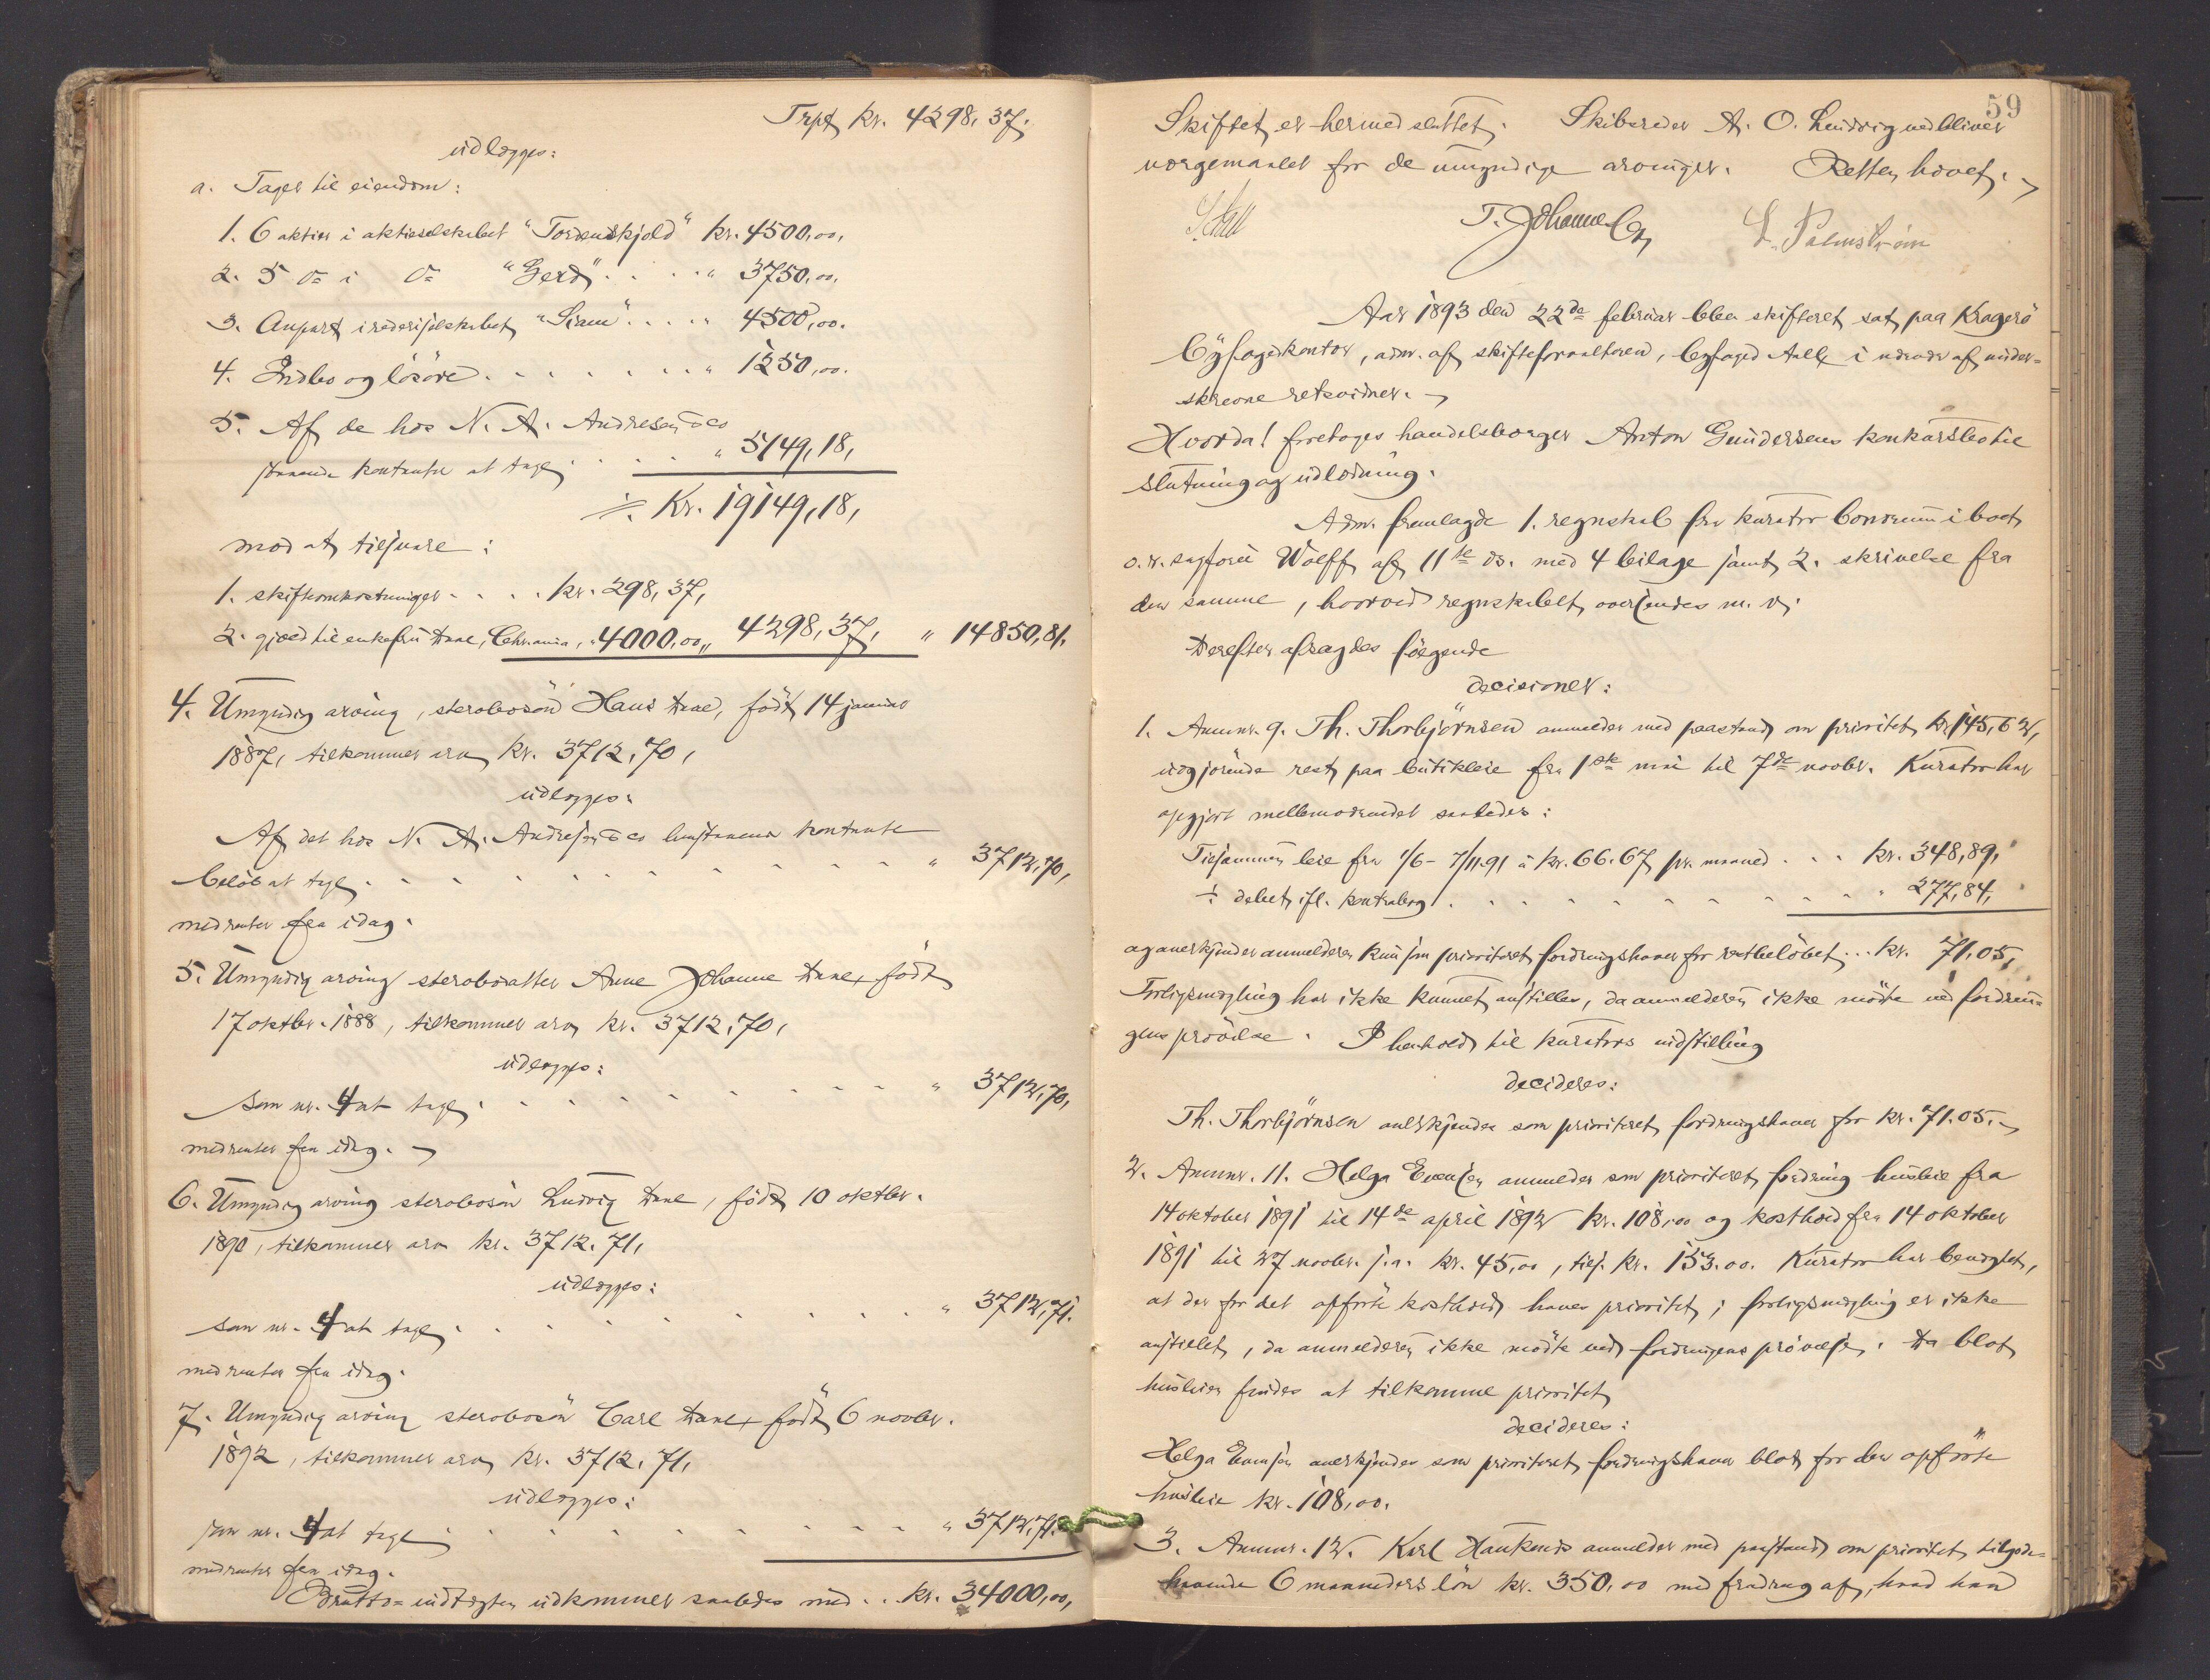 Trpt kr. 4298,37,
udlægges:
a. Tages til eiendom:
1. 6 aktier i aktieselskabet "Tordenskjold" kr. 4500,00,
2. 5 do i do "Gerd" . . . . " 3750,00,
3. Anpart i rederiselskabet "Siam" . . . . " 4500,00.
4. Indbo og løsøre . . . . . . . . " 1250,00.
5. Af de hos N. A. Andresen & Co
staaende kontanter at tage . . . . " 5149,18,
÷ Kr. 19149,18,
mod at tilsvare:
1. skifteomkostninger . . . . kr. 298,37,
2. gjæld til enkefru Aall, Chrania, " 4000,00,, 4298,37, " 14850,81,
4. Umyndig arving, sterbosøn Hans, født 14 januar
1887, tilkommer arv kr. 3712,70,
udlægges:
Af det hos N. A. Andresen & Co henstaaende kontante
beløb at tage . . . . . . . . . . " 3712,70,
med renter fra idag.
5. Umyndig arving sterbodatter Anne Johanne født
17 oktbr. 1888, tilkommer arv kr. 3712,70,
udlægges:
Som nr. 4 at tage . . . . . . . . . " 3712,70,
med renter fra idag.
6. Umyndig arving sterbosøn Ludvig, født 10 oktbr.
1890, tilkommer arv kr. 3712,71,
udlægges:
Som nr. 4 at tage . . . . . . . . . " 3712,71.
med renter fra idag.
7. Umyndig arving sterbosøn Carl født 6 novbr.
1892, tilkommer arv kr. 3712,71,
udlægges:
som nr. 4 at tage . . . . . . . . . " 3712,71.
med renter fra idag.
Brutto-indtægten udkommer saaledes med . . kr. 34000,00,
59
Skiftet er hermed sluttet. Skibsreder A. O. Lindvig vedbliver
værgemaalet for de umyndige arvinger. Retten hævet.
T. Johannesen L. Palmstrøm
Aar 1893 den 22de februar blev skifteret sat paa Kragerø
byfogedkontor, adm. af skifteforvalteren, byfoged Aall i nærvær af under-
skrevne retsvidner.
Hvorda! foretoges handelsborger Anton Gundersens konkursbo til
slutning og udlodning.
Adm. fremlagde 1. regnskab fra kurator bonorum i boet
o.r. sagfører Wolff af 11te ds. med 4 bilage samt 2. skrivelse fra
den samme, hvorved regnskabet oversendes m. v.
Derefter afsagdes følgende
decisioner:
1. Anmnr. 9. Th. Thorbjørnsen anmelder med paastand om prioritet kr. 145,62,
udgjørende rest paa butikleie fra 1ste mai til 7de novbr. Kurator har
opgjort mellemværendet saaledes:
Tilsammen leie fra 1/6 - 7/11.91 à kr. 66.67 pr. maaned . . . kr. 348,89,
÷ debet ifl. kontrabog . . . . . . . . . . " 277,84,
og anerkjender anmelderen kun som prioriteret fordringshaver for restbeløbet . . . kr. 71,05,
Forligsmægling har ikke kunnet anstilles, da anmelderen ikke mødte ved fordrin-
gens prøvelse. I henhold til kurators indstilling
decideres:
Th. Thorbjørnsen anerkjendes som prioriteret fordringshaver for kr. 71.05.
2. Anmnr. 11. Helga Evensen anmelder som prioriteret fordring husleie fra
14 oktober 1891 til 14de april 1892 kr. 108,00 og kosthold fra 14 oktober
1891 til 27 novbr. s.a. kr. 45,00, tils. kr. 153.00. Kurator har benægtet,
at der for det opførte kosthold haves prioritet; forligsmægling er ikke
anstillet, da anmelderen ikke mødte ved fordringens prøvelse. Da blot
husleien findes at tilkomme prioritet
decideres:
Helga Evensen anerkjendes som prioriteret fordringshaver blot for den opførte
husleie kr. 108,00.
3. Anmnr. 12. Karl Haukenæs anmelder med paastand om prioritet tilgode-
havende 6 maaneders løn kr. 350,00 med fradrag af, hvad han